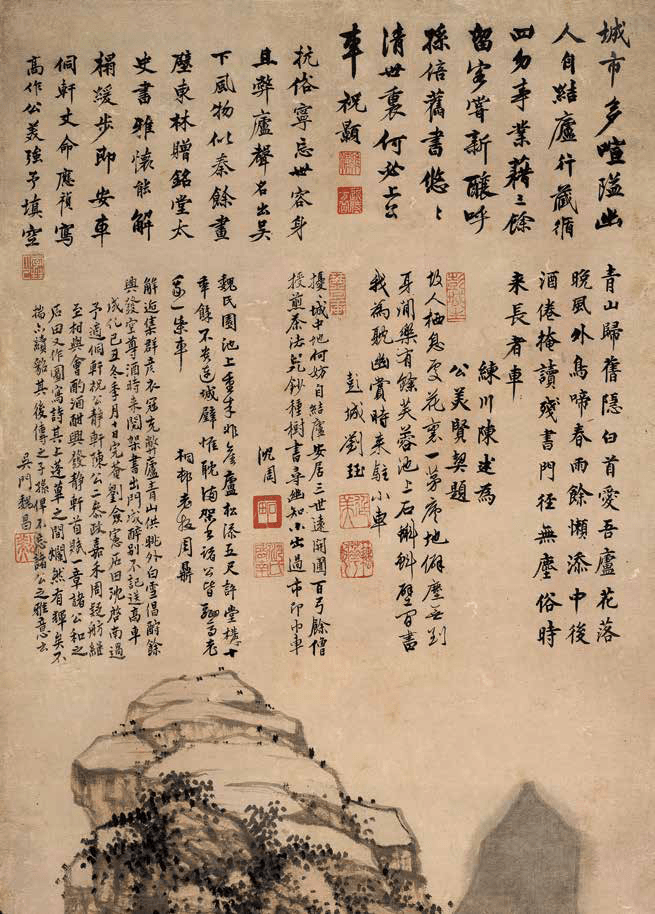 城市多喧隘幽
人自結廬行藏循
四勿事業藉三餘
留客嘗新釀呼
孫倍舊書悠〻
清世裏何必上公
車 祝顥
抗俗寧忘世容身
且弊廬聲名出吳
下風物似秦餘畫
壁東林贈銘堂太
史書雅懷能解
榻緩步即安車
侗軒丈命應禎寫
高作公美強予填空
青山歸舊隱白首愛吾廬花落
晚風外鳥啼春雨餘懶添中後
酒倦掩讀殘書門徑無塵俗時
来長者車
練川陳述為
公美賢契題
故人栖息處花裏一茅廬地僻塵無到
身閒樂有餘芙蓉池上石蝌蚪壁間書
我為耽幽賞時来駐小車
彭城劉珏
擾〻城中地何妨自結廬安居三世遠開圃百弓餘僧
授煎茶法兒鈔種樹書尋幽知小出過市印巾車
沈周
魏氏園池上重来非舊廬松添五尺許堂構十
年餘不 連城璧惟耽滿架書諸公皆駟馬老
我一柴車
桐邨老牧周鼎
解逅集群彦衣冠充弊廬青山供眺外白雪倡酧餘
興發空尊酒時来閱架書出門成醉別不記送高車
成化己丑冬季月十日完菴劉僉憲石田沈啓南過
予適侗軒祝公靜軒陳公二參政嘉禾周疑舫繼
至相與會酌酒酣興發靜軒首賦一章諸公和之
石田又作圖寫詩其上蓬蓽之間爛然有輝矣不
揣亦續貂其後傳之子孫俾不忘諸公之雅意云
吳門魏昌